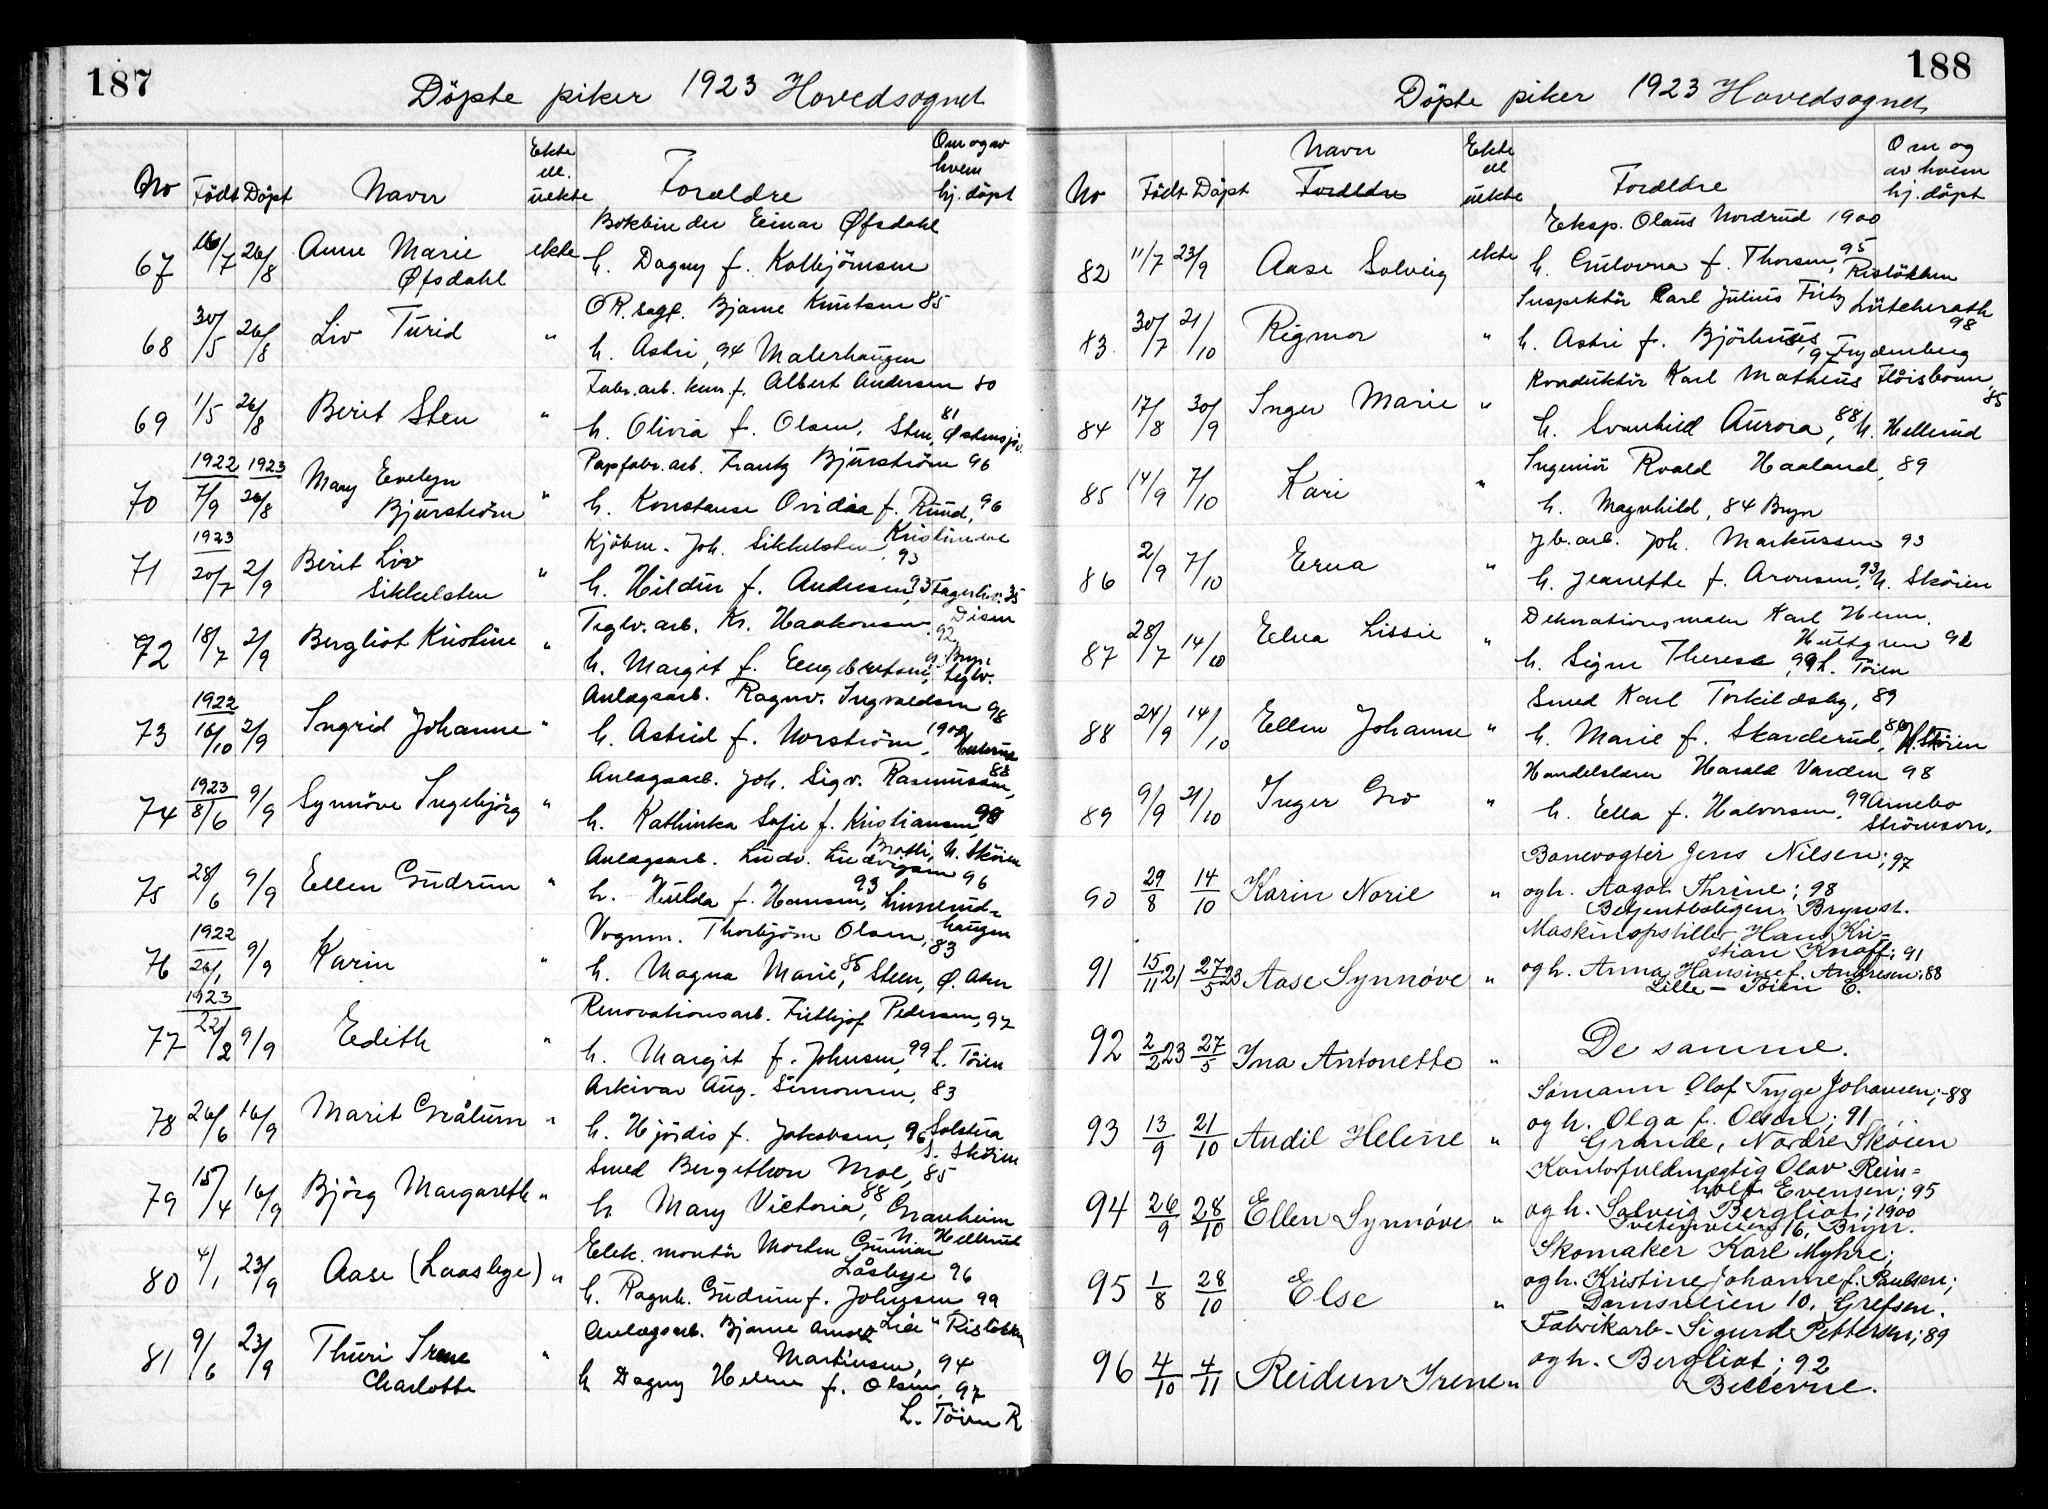 187
Döpte piker 1923 Hovedsognet
No Födt Döpt Navn Ekte ell. uekte Foreldre Om og av hvem hj. döpt
67 16/7 26/8 Anne Marie Øfsdahl ekte Bokbinder Einar Øfsdahl
h. Dagny f. Kolbjörnsen
68 30/5 26/8 Liv Turid " O.R. sagf. Bjarne Knutsen 85
h. Astri, 94 Malerhaugen
69 1/5 26/8 Berit Sten " Fabr.arb. Albert Andersen 80
h. Olivia f. Olsen, 81 Sten, Østensjö
70 1922 7/9 1923 26/8 Mary Evelyn Bjurström " Papfabr.arb. Frantz Bjurström 96
h. Konstanse Ovidia f. Ruud, 96
71 1923 20/7 2/9 Berit Liv Sikkelsten " Kjöbm. Joh. Sikkelsten 93
h. Hildur f. Andersen, 93 Fagerli
72 18/7 2/9 Bergliot Kristine " Teglv.arb. Kr. Haakonsen 92
h. Margit f. Engebretsen, Bryn Teglv.
73 1922 16/10 2/9 Ingrid Johanne " Anlægsarb. Ragnv. Ingvaldsen 98
h. Astrid f. Norström, 1900
74 1923 8/6 9/9 Synnöve Ingebjörg " Anlægsarb. Joh. Sigv. Rasmussen, 88
h. Kathinka Sofie f. Kristiansen, 98
Bratli, N. Sköien
75 28/6 9/9 Ellen Gudrun " Anlægsarb. Ludv. Ludvigsen 96
h. Hulda f. Hansen, 93 Linnerud-
haugen
76 1922 26/1 9/9 Karin " Vognm. Thorbjörn Olsen, 83
h. Magna Marie, 86 Steen, Ø. Aker
77 1923 22/2 9/9 Edith " Renovationsarb. Frithjof Pedersen, 97
h. Margit f. Johnsen, 99 L. Töien
78 26/6 16/9 Marit Gråtun " Arkivar Aug. Simonsen, 83
h. Hjördis f. Jakobsen, 96, Solstua
S. Sköien
79 15/4 16/9 Björg Margareth " Smed Bergithon Moe, 85
h. Mary Victoria, 88 Granheim
N. Hellerud
80 4/1 23/9 Aase (Laasbye) " Elek. montör Morten Gunnar Låsbye 96
h. Ragnh. Gudrun f. Johnsen 99
Lia, Ristökken
81 9/6 23/9 Thuri Irene Charlotte " Anlægsarb. Bjarne Martinsen, 94
h. Dagny Helene f. Olsen, 97
L. Töien
188
Döpte piker 1923 Hovedsognet
No Födt Döpt Navn Foreldre Ekte ell uekte Foreldre Om og av hvem hj. döpt
82 11/7 23/9 Aase Solveig ekte Eksp. Olaus Nordrud 1900
h. Gulovna f. Thorsen, 95 Ristökken
83 30/7 21/10 Rigmor " Inspektör Carl Julius Fritz Lütcherath 98
h. Astri f. Björhuus, 97 Frydenberg
84 17/8 30/9 Inger Marie " Konduktör Karl Matheus Flöisbonn, 85
h. Svanhild Aurora, 88 N. Hellerud
85 14/9 7/10 Kari " Ingeniör Roald Haaland, 89
h. Magnhild, 84 Bryn
86 2/9 7/10 Erna " Jb. arb. Joh. Markussen 93
h. Jeanette f. Aronsen, 93 N. Sköien
87 28/7 14/10 Edna Lissie " Dekorationsmaler Karl Henn. Hultgren 92
h. Signe Therese, 99 L. Töien
88 24/9 14/10 Ellen Johanne " Smed Karl Torkildsby, 89
h. Marie f. Skarderud, N. Sköien
89 9/9 21/10 Inger Gro " Handelslærer Harald Varden 98
h. Ella f. Halvorsen, 99 Arnebo
Strömsvn.
90 29/8 14/10 Karin Norie " Banevogter Jens Nilsen; 97
og h. Aagot Thrine; 98
Betjentboligen. Brynst.
91 15/11 21 27/5 23 Aase Synnøve " Maskinopstiller Hans Kri-
stian Knoff; 91
og h. Anna Hansine f. Andresen; 88
Lille-Töien
92 2/2 23 27/5 Ina Antonette " De samme.
93 13/9 21/10 Audil Helene " Sømann Olaf Tryge Johansen; 88
og h. Olga f. Olsen; 91
Grande, Nordre Skøien
94 26/9 28/10 Ellen Synnøve " Kontorfuldmægtig Olav Rein-
holt Evensen; 95
og h. Solveig Bergliot; 1900
Tvetenveien 16, Bryn.
95 1/8 28/10 Else " Skomaker Karl Myhre;
og h. Kristine Johanne f. Paulsen;
Damsveien 10, Grefsen.
96 4/10 4/11 Reidun Irene " Fabrikarb. Sigurd Pettersen; 89
og h. Bergliot; 92
Bellevue.